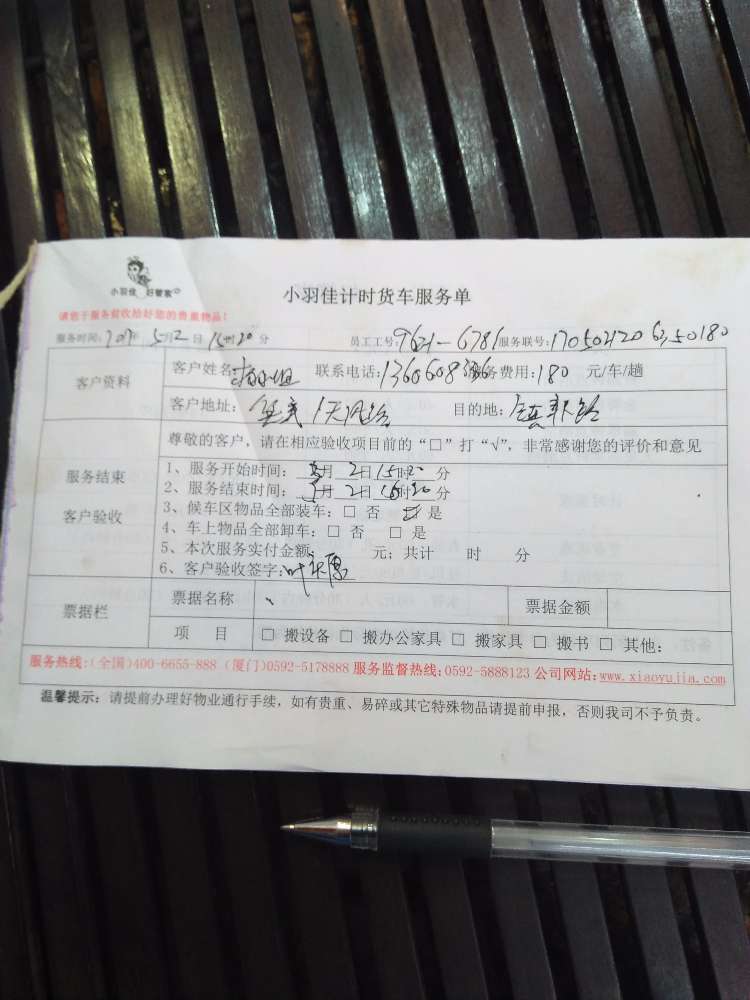 小羽佳 好管家
小羽佳计时货车服务单
请您于服务前收拾好您的贵重物品！
服务时间: 年 5月2日 15时20分 员工工号: 9621-6781 服务联号:
客户资料
客户姓名: 小姐 联系电话: 服务费用: 180 元/车/趟
客户地址: 目的地:
服务结束
客户验收
尊敬的客户，请在相应验收项目前的“□”打“√”，非常感谢您的评价和意见
1、服务开始时间: 5月 2日 15时20分
2、服务结束时间: 5月 2日 16时20分
3、候车区物品全部装车: □ 否 □ 是
4、车上物品全部卸车: □ 否 □ 是
5、本次服务实付金额: 元; 共计 时 分
6、客户验收签字: 叶
票据栏
票据名称 票据金额
项 目 □ 搬设备 □ 搬办公家具 □ 搬家具 □ 搬书 □ 其他:
服务热线:(全国)400-6655-888 (厦门)0592-5178888 服务监督热线:0592-5888123 公司网站:www.xiaoyujia.com
温馨提示: 请提前办理好物业通行手续，如有贵重、易碎或其它特殊物品请提前申报，否则我司不予负责。